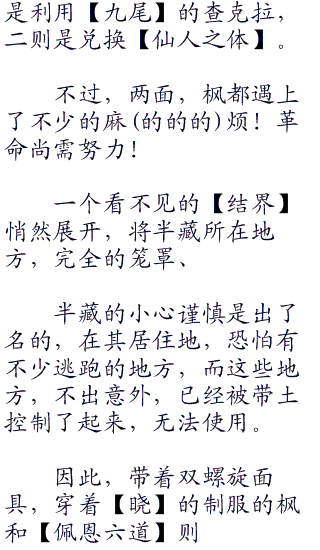 是利用【九尾】的查克拉，
二则是兑换【仙人之体】。
不过，两面，枫都遇上
了不少的麻(的的的)烦！革
命尚需努力！
一个看不见的【结界】
悄然展开，将半藏所在地
方，完全的笼罩、
半藏的小心谨慎是出了
名的，在其居住地，恐怕有
不少逃跑的地方，而这些地
方，不出意外，已经被带土
控制了起来，无法使用。
因此，带着双螺旋面
具，穿着【晓】的制服的枫
和【佩恩六道】则